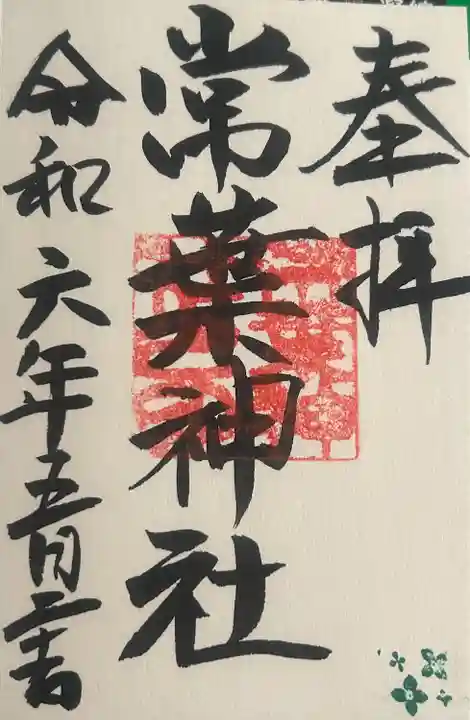 奉拝
常葉神社
令和六年五月二書